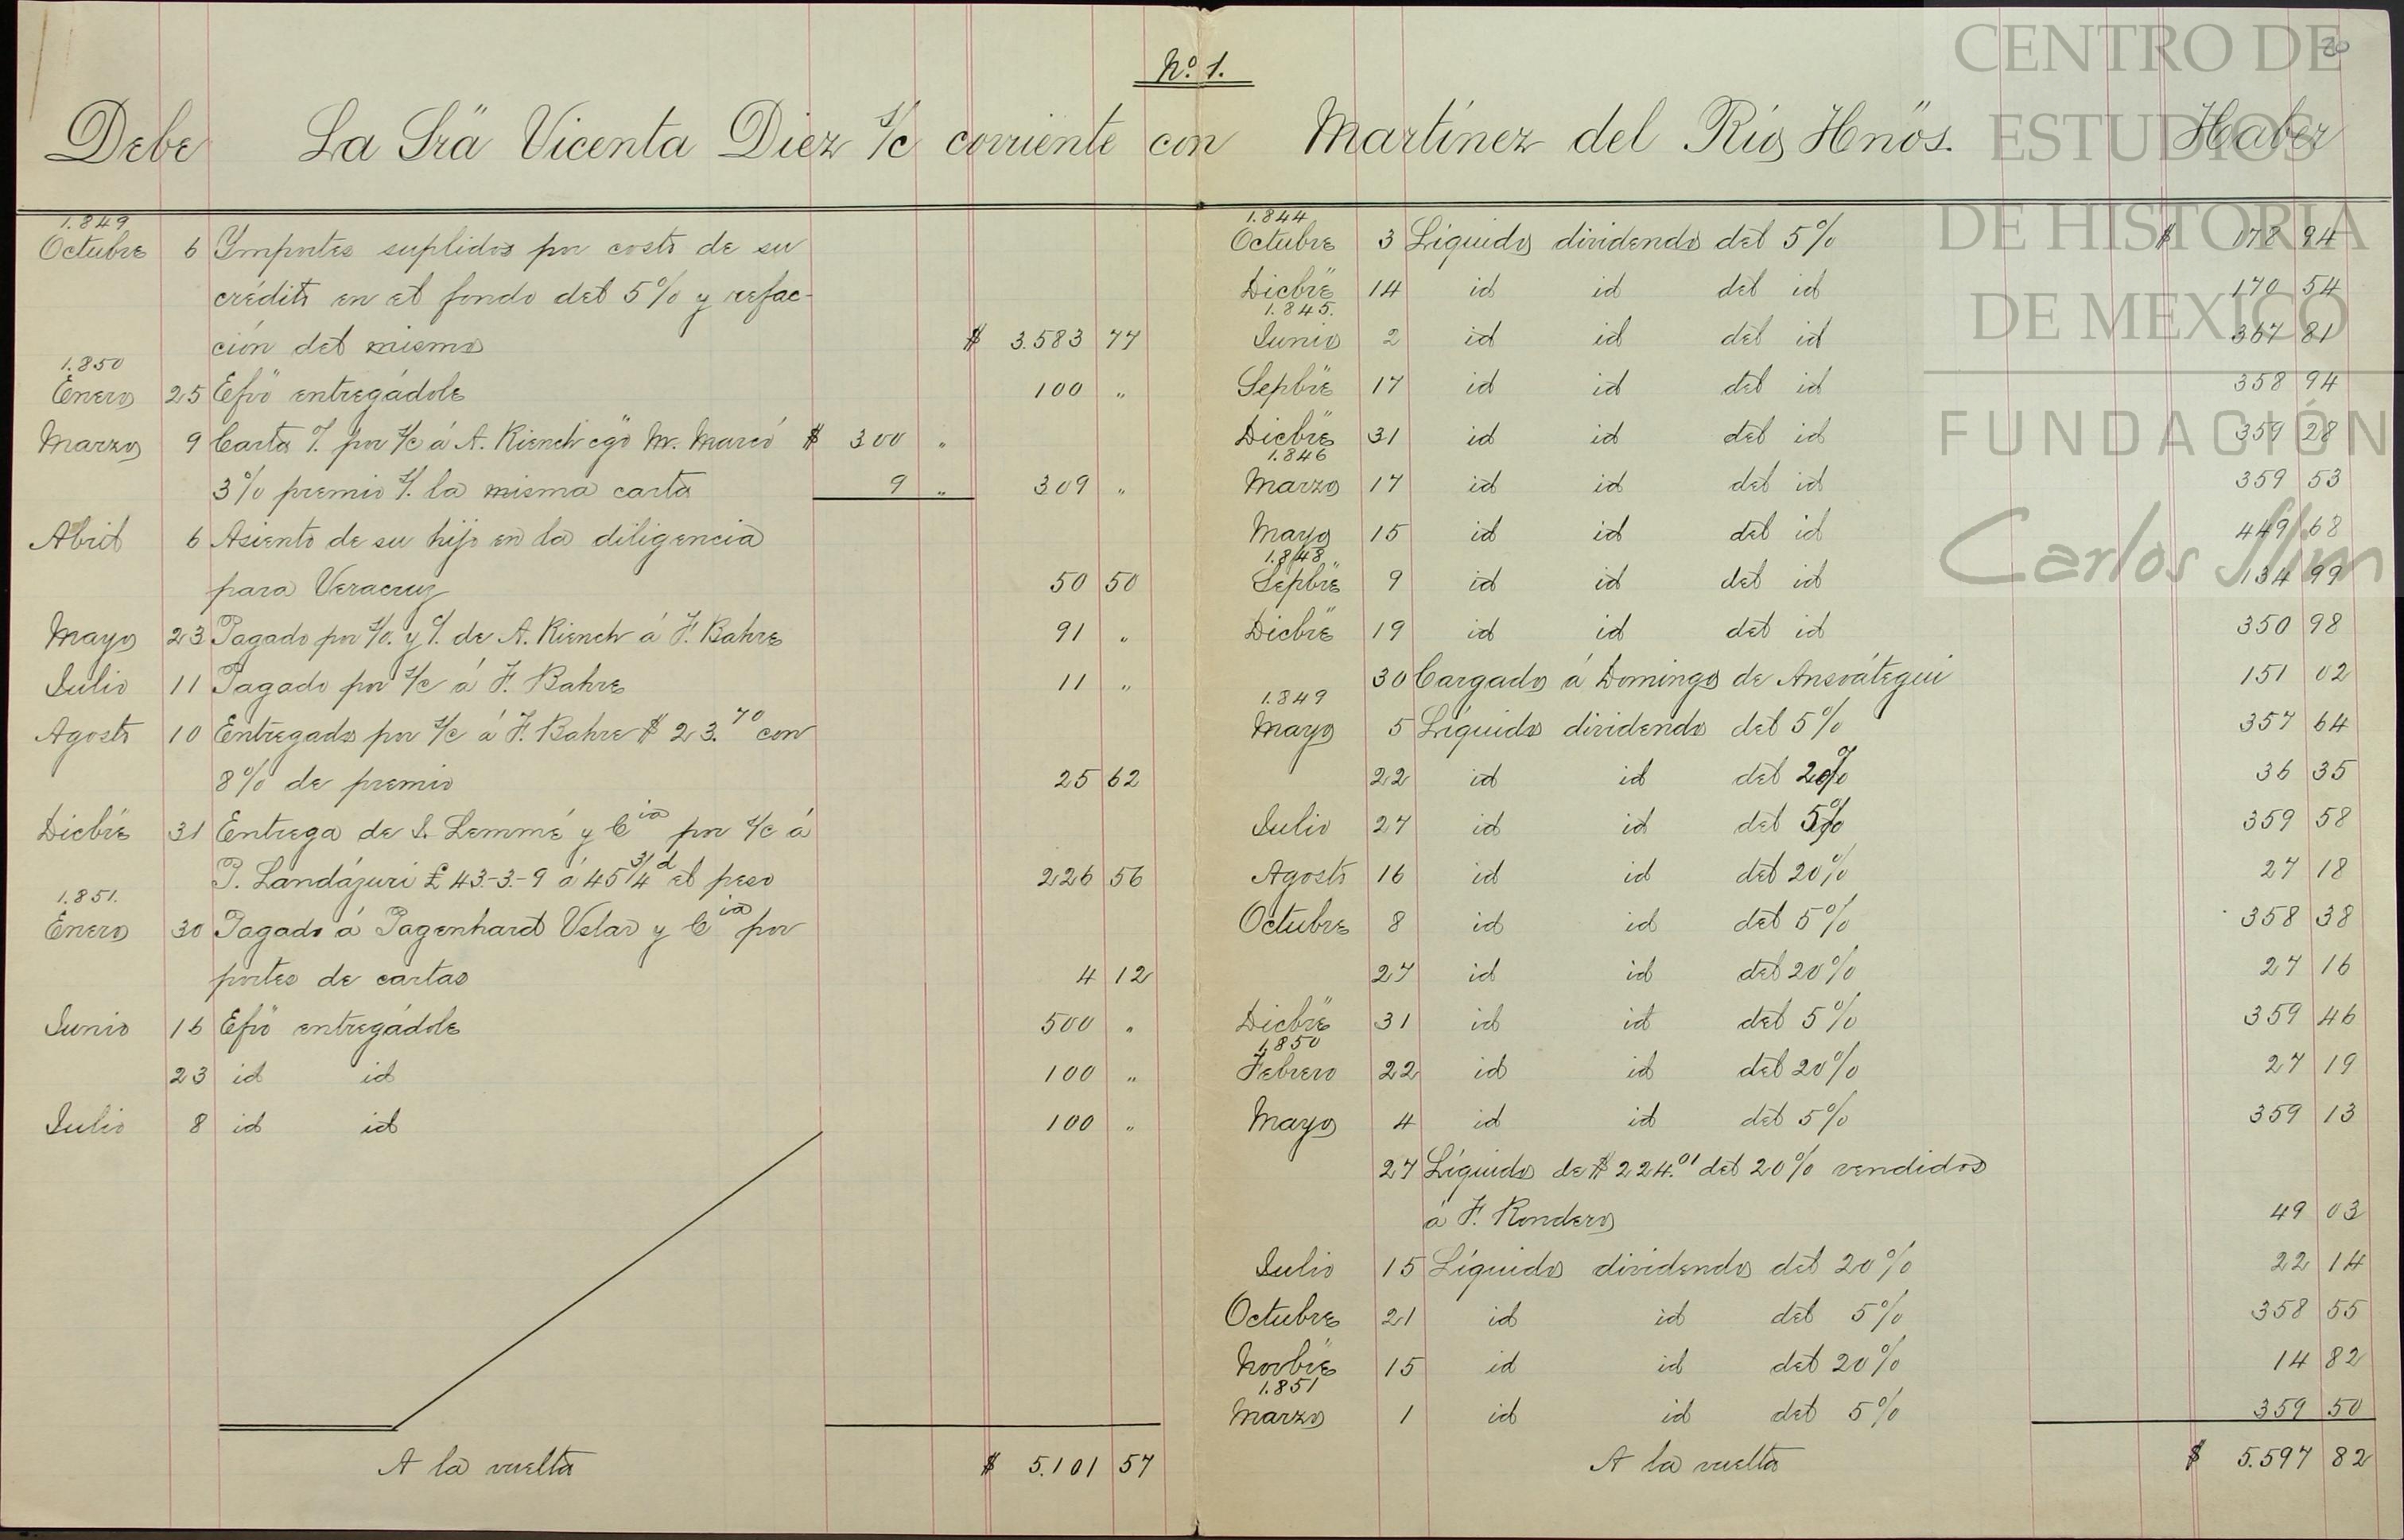 Nº 1.
Debe La Srä Vicenta Diez s/c corriente con Martínez del Río Hnös. Haber
1.849
Octubre 6 Ymportes suplidos por costo de su
crédito en el fondo del 5% y refac-
ción del mismo $ 3.583 77
1.850
Enero 25 Efvö entregádole 100 "
Marzo 9 Carta por s/c á A. Kiench M. Marcó $ 300 "
3% premio s/. la misma carta 9 " 309 "
Abril 6 Asiento de su hijo en la diligencia
para Veracruz 50 50
Mayo 23 Pagado por s/o. y c/. de A. Kiench á F. Bahre 91 "
Julio 11 Pagado por s/c á F. Bahre 11 "
Agosto 10 Entregado por s/c á F. Bahre $ 23.70 con
8% de premio 25 62
Dicbrë 31 Entrega de S. Lemmé y Cia por s/c á
P. Landázuri £ 43.-3.-9 á 45 3/4 d el peso 226 56
1.851.
Enero 30 Pagado á Pagenhardt Uslar y Cia por
portes de cartas 4 12
Junio 16 Efvö entregádole 500 "
23 id id 100 "
Julio 8 id id 100 "
A la vuelta $ 5.101 57
20
1.844
Octubre 3 Líquido dividendo del 5% $ 178 94
Dicbrë 14 id id del id 170 54
1.845.
Junio 2 id id del id 367 81
Sepbrë 17 id id del id 358 94
Dicbrë 31 id id del id 359 28
1.846
Marzo 17 id id del id 359 53
Mayo 15 id id del id 449 68
1.848
Sepbrë 9 id id del id 134 99
Dicbrë 19 id id del id 350 98
30 Cargado á Domingo de Ansoátegui 151 02
1.849
Mayo 5 Líquido dividendo del 5% 357 64
22 id id del 20% 36 35
Julio 27 id id del 5% 359 58
Agosto 16 id id del 20% 27 18
Octubre 8 id id del 5% 358 38
27 id id del 20% 27 16
Dicbrë 31 id id del 5% 359 46
1.850
Febrero 22 id id del 20% 27 19
Mayo 4 id id del 5% 359 13
27 Líquido de $ 224.01 del 20% vendidos
á F. Rondero 49 03
Julio 15 Líquido dividendo del 20% 22 14
Octubre 21 id id del 5% 358 55
Novbrë 15 id id del 20% 14 82
1.851
Marzo 1 id id del 5% 359 50
A la vuelta $ 5.597 82
CENTRO DE
ESTUDIOS
DE HISTORIA
DE MEXICO
FUNDACIÓN
Carlos Slim